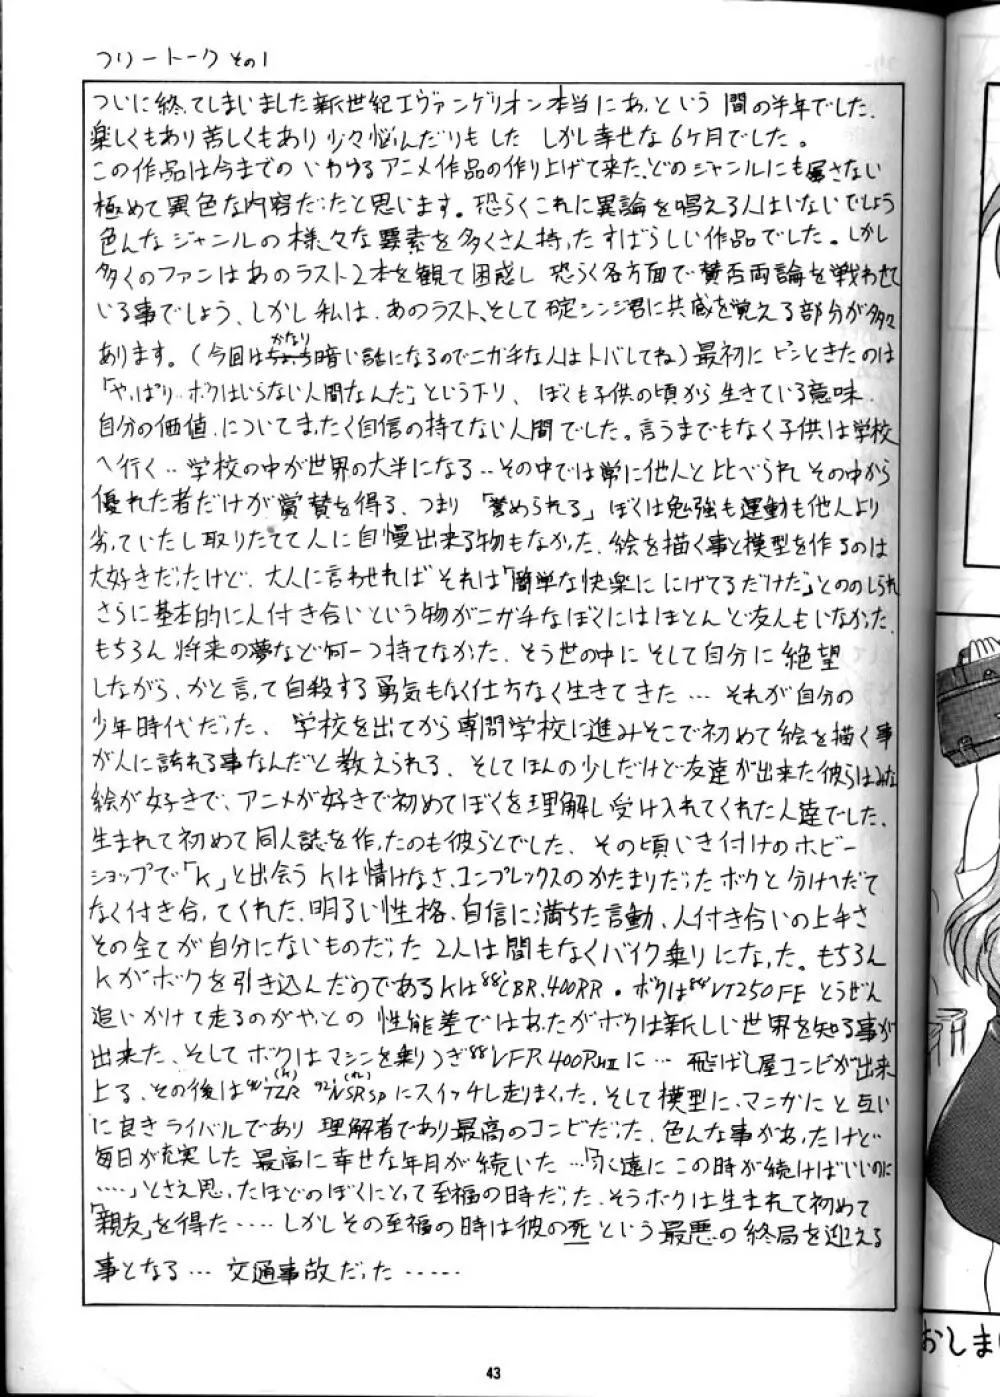 フリートーク その1
ついに終ってしまいました新世紀エヴァンゲリオン本当にあっという間の半年でした.
楽しくもあり苦しくもあり少々悩んだりもした しかし幸せな6ケ月でした。
この作品は今までのいわゆるアニメ作品の作り上げて来た、どのジャンルにも属さない
極めて異色な内容だったと思います。恐らくこれに異論を唱える人はいないでしょう
色んなジャンルの様々な要素を多くさん持ったすばらしい作品でした。しかし
多くのファンはあのラスト2本を観て困惑し 恐らく各方面で賛否両論を戦わせて
いる事でしょう、しかし私は、あのラスト、そして碇シンジ君に共感を覚える部分が多々
あります。(今回はかなり暗い話になるのでニガ手な人はトバしてね)最初にピンときたのは
「やっぱり‥ボクはいらない人間なんだ」という下り、ぼくも子供の頃から生きている意味.
自分の価値.についてまったく自信の持てない人間でした。言うまでもなく子供は学校
へ行く‥学校の中が世界の大半になる‥その中では常に他人と比べられその中から
優れた者だけが賞賛を得る、つまり「誉められる」ぼくは勉強も運動も他人より
劣っていたし取りたてて人に自慢出来る物もなかった.絵を描く事と模型を作るのは
大好きだったけど、大人に言わせればそれは「簡単な快楽ににげてるだけだ」とののしられ
さらに基本的に人付き合いという物がニガ手なぼくにはほとんど友人もいなかった.
もちろん将来の夢など何一つ持てなかった.そう世の中にそして自分に絶望
しながら、かと言って自殺する勇気もなく仕方なく生きてきた…それが自分の
少年時代だった、学校を出てから専門学校に進みそこで初めて絵を描く事
が人に誇れる事なんだと教えられる、そしてほんの少しだけど友達が出来た彼らはみな
絵が好きで、アニメが好きで初めてぼくを理解し受け入れてくれた人達でした、
生まれて初めて同人誌を作ったのも彼らとでした、その頃いき付けのホビー
ショップで「K」と出会うKは情けなさ、コンプレックスのかたまりだったボクと分けへだて
なく付き合ってくれた、明るい性格、自信に満ちた言動、人付き合いの上手さ
その全てが自分にないものだった 2人は間もなくバイク乗りになった。もちろん
Kがボクを引き込んだのであるKは'88CBR.400RR。ボクは'88VT250FE とうぜん
追いかけて走るのがやっとの 性能差ではあったがボクは新しい世界を知る事が
出来た、そしてボクはマシンを乗りつぎ'88VFR400RⅢに…飛ばし屋コンビが出来
上る、その後は TZR NSRSPにスイッチし走りまくった、そして模型に、マニかにと互い
に良きライバルであり 理解者であり最高のコンビだった、色んな事があったけど
毎日が充実した 最高に幸せな年月が続いた…「永遠にこの時が続けばいいのに
……」とさえ思ったほどのぼくにとって至福の時だった、そうボクは生まれて初めて
「親友」を得た……しかしその至福の時は彼の死という最悪の終局を迎える
事となる…交通事故だった……
43
おしまい